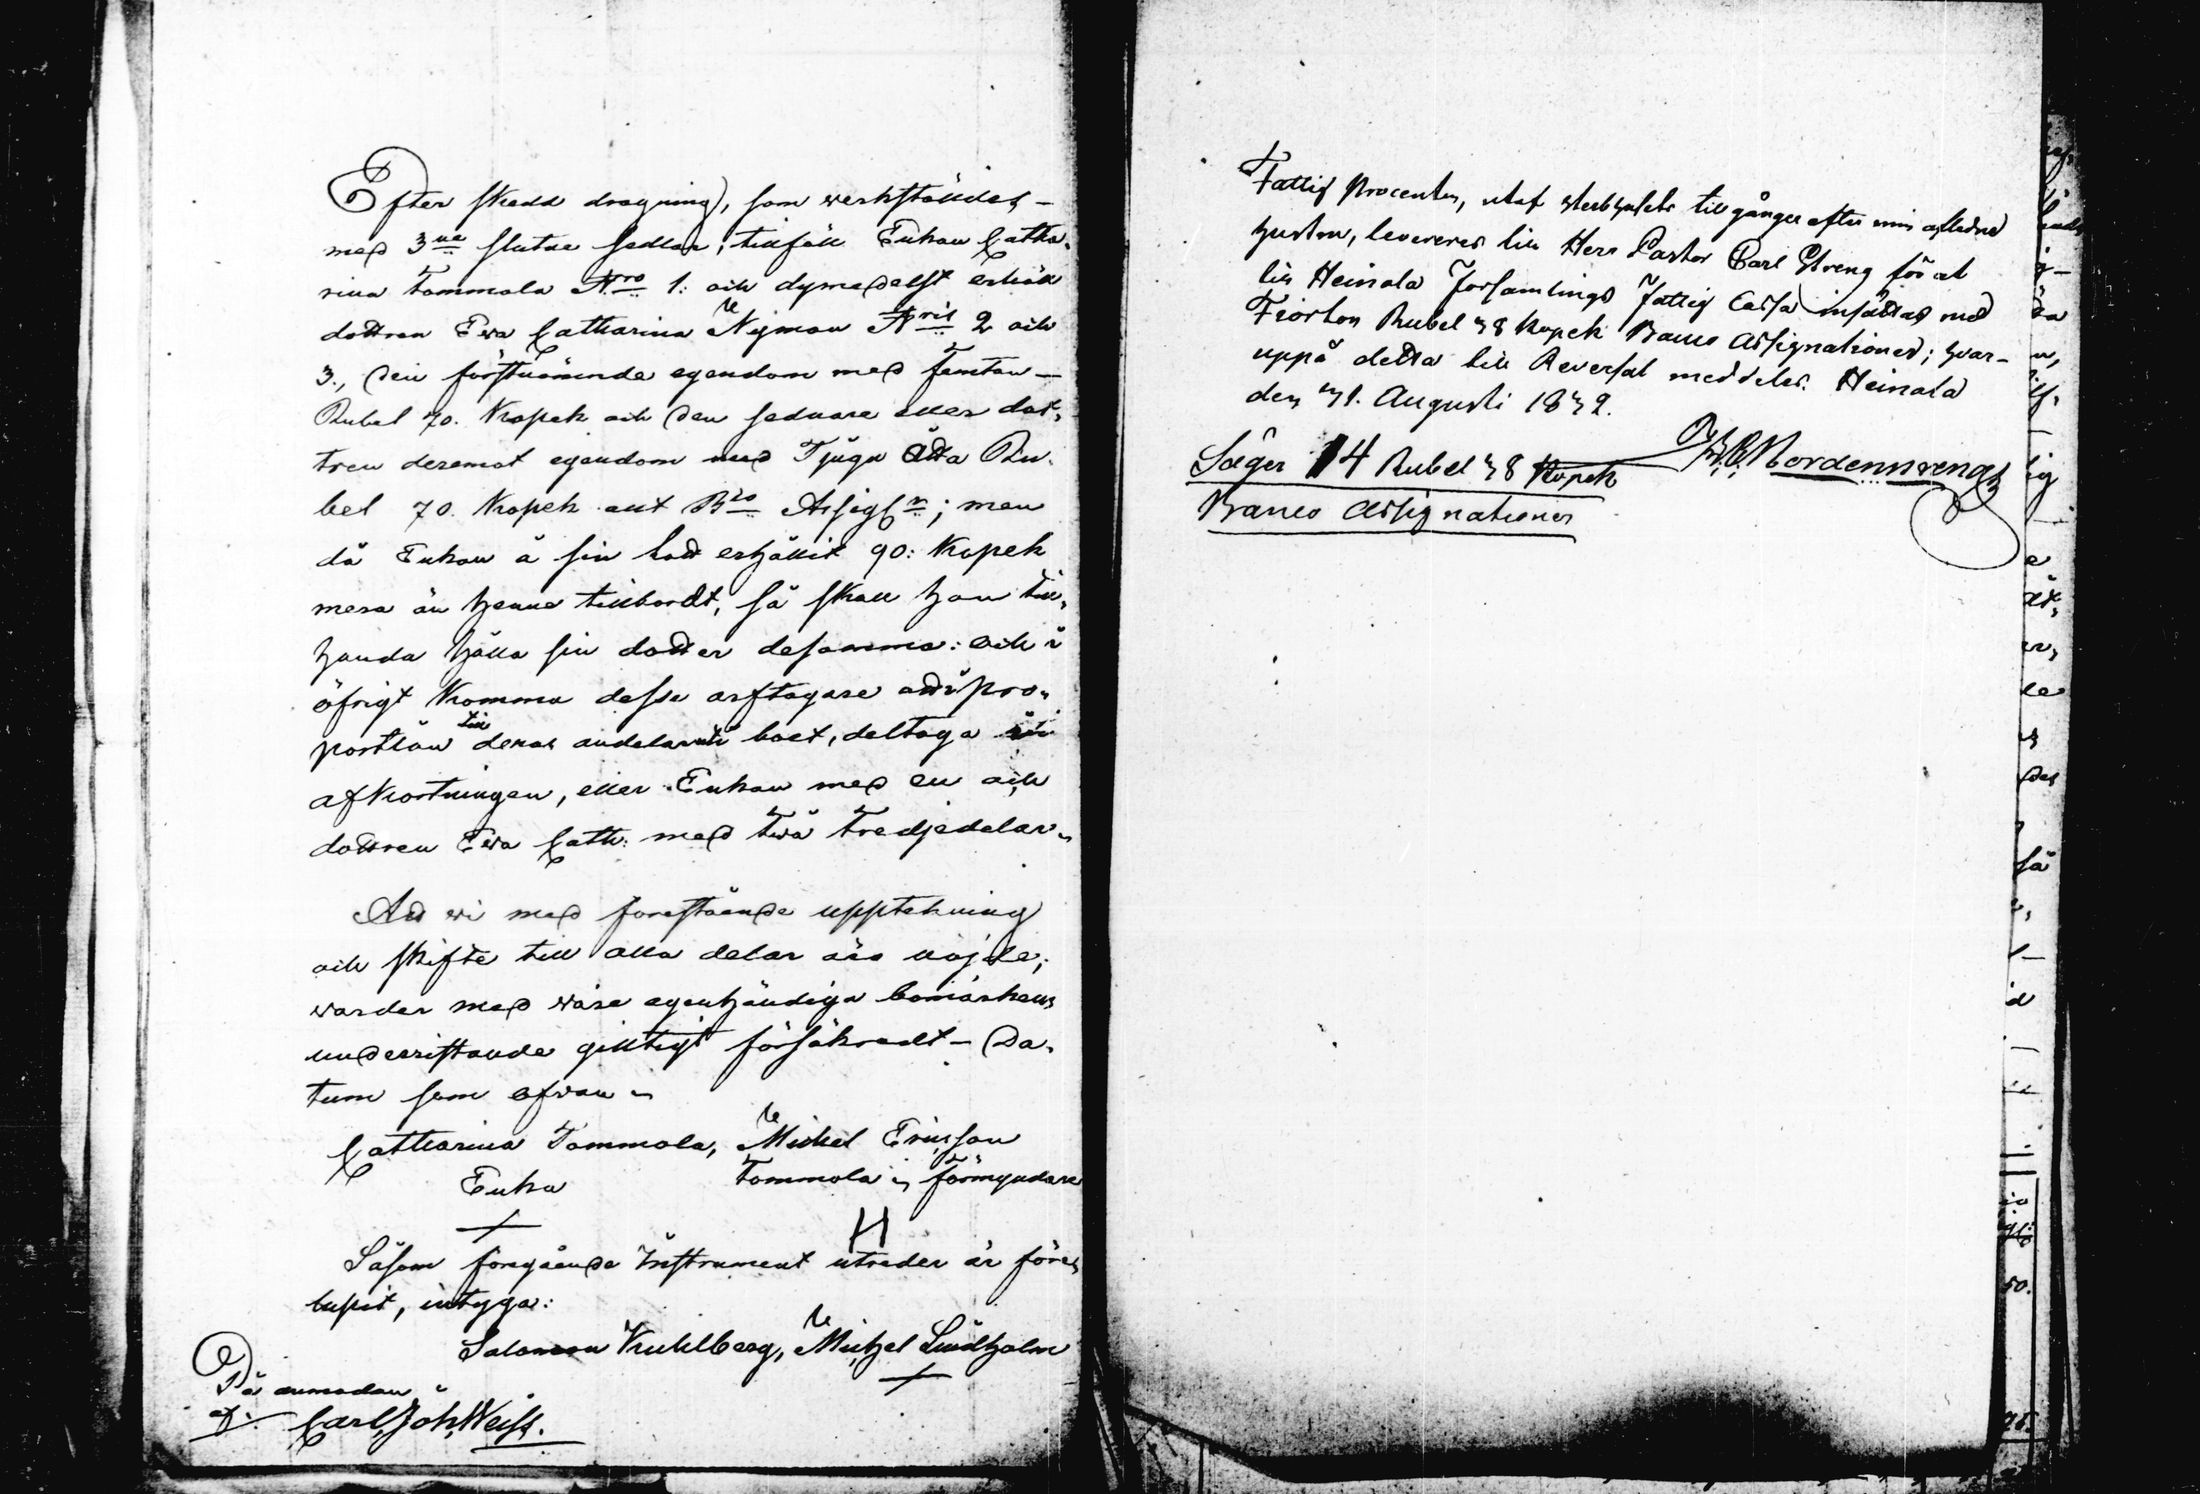 Efter skedd dragning, som werkställdes –
med 3ne slutne sedlar, tillföll Enkan Catha-
rina Tommola Nro 1: och dymedelst erhöll
dottren Ewa Catharina Nyman Nris 2 och
3., den förstnämnde egendom med femton –
Rubel 70. Kopek och den sednare eller dot-
tren deremot egendom med Tjugu åtta Ru-
bel 70. Kopek allt Bco Assigns; men
då Enkan å sin lott erhållit 90: Kopek
mera än henne tillbordt, så skall hon till-
handa hålla sin dotter desamma: och i
öfrigt komma desse arftagare att i pro-
portion till deras andelar i boet, deltaga i
afkortningen, eller Enkan med en och
dottren Ewa Cath: med twå tredjedelar.
Att wi med forestående uppteckning
och skifte till alla delar äro nöjde;
warder med wåre egenhändiga bomärkens
underristande gilltigt försäkradt – Da-
tum som ofwan
Catharina Tommola, Michel Ericsson
Enka Tommola förmyndare
Såsom föregående Instrument utreder är före-
lupit, intyga:
Salomon Kuhlberg, Michel Lindholm
På anmodan
af. Carl Joh. Weiss.
Fattig Procenten, utaf sterbhusets tillgångar efter min aflidne
hustru, levereres till Herr Pastor Carl Streng för at
till Heinola Församlings Fattig Cassa insättas med
Fiorton Rubel 38 Kopek Banco Assignationer; hvar-
uppå detta till Reversal meddelas. Heinola
den 31. Augusti 1832.
Säger 14 Rubel 38 Kopek
Banco Assignationer